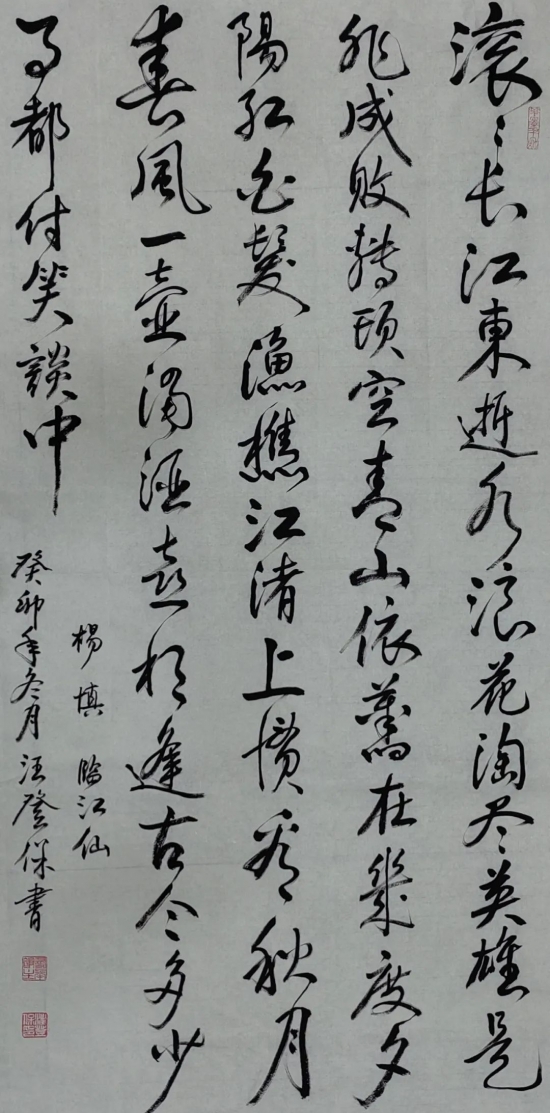 滚〻长江東逝水浪花淘尽英雄是
非成敗转頭空青山依舊在幾度夕
陽红白髮漁樵江渚上惯看秋月
春風一壶濁酒喜相逢古今多少
事都付笑談中
楊慎 臨江仙
癸卯年冬月汪登保書